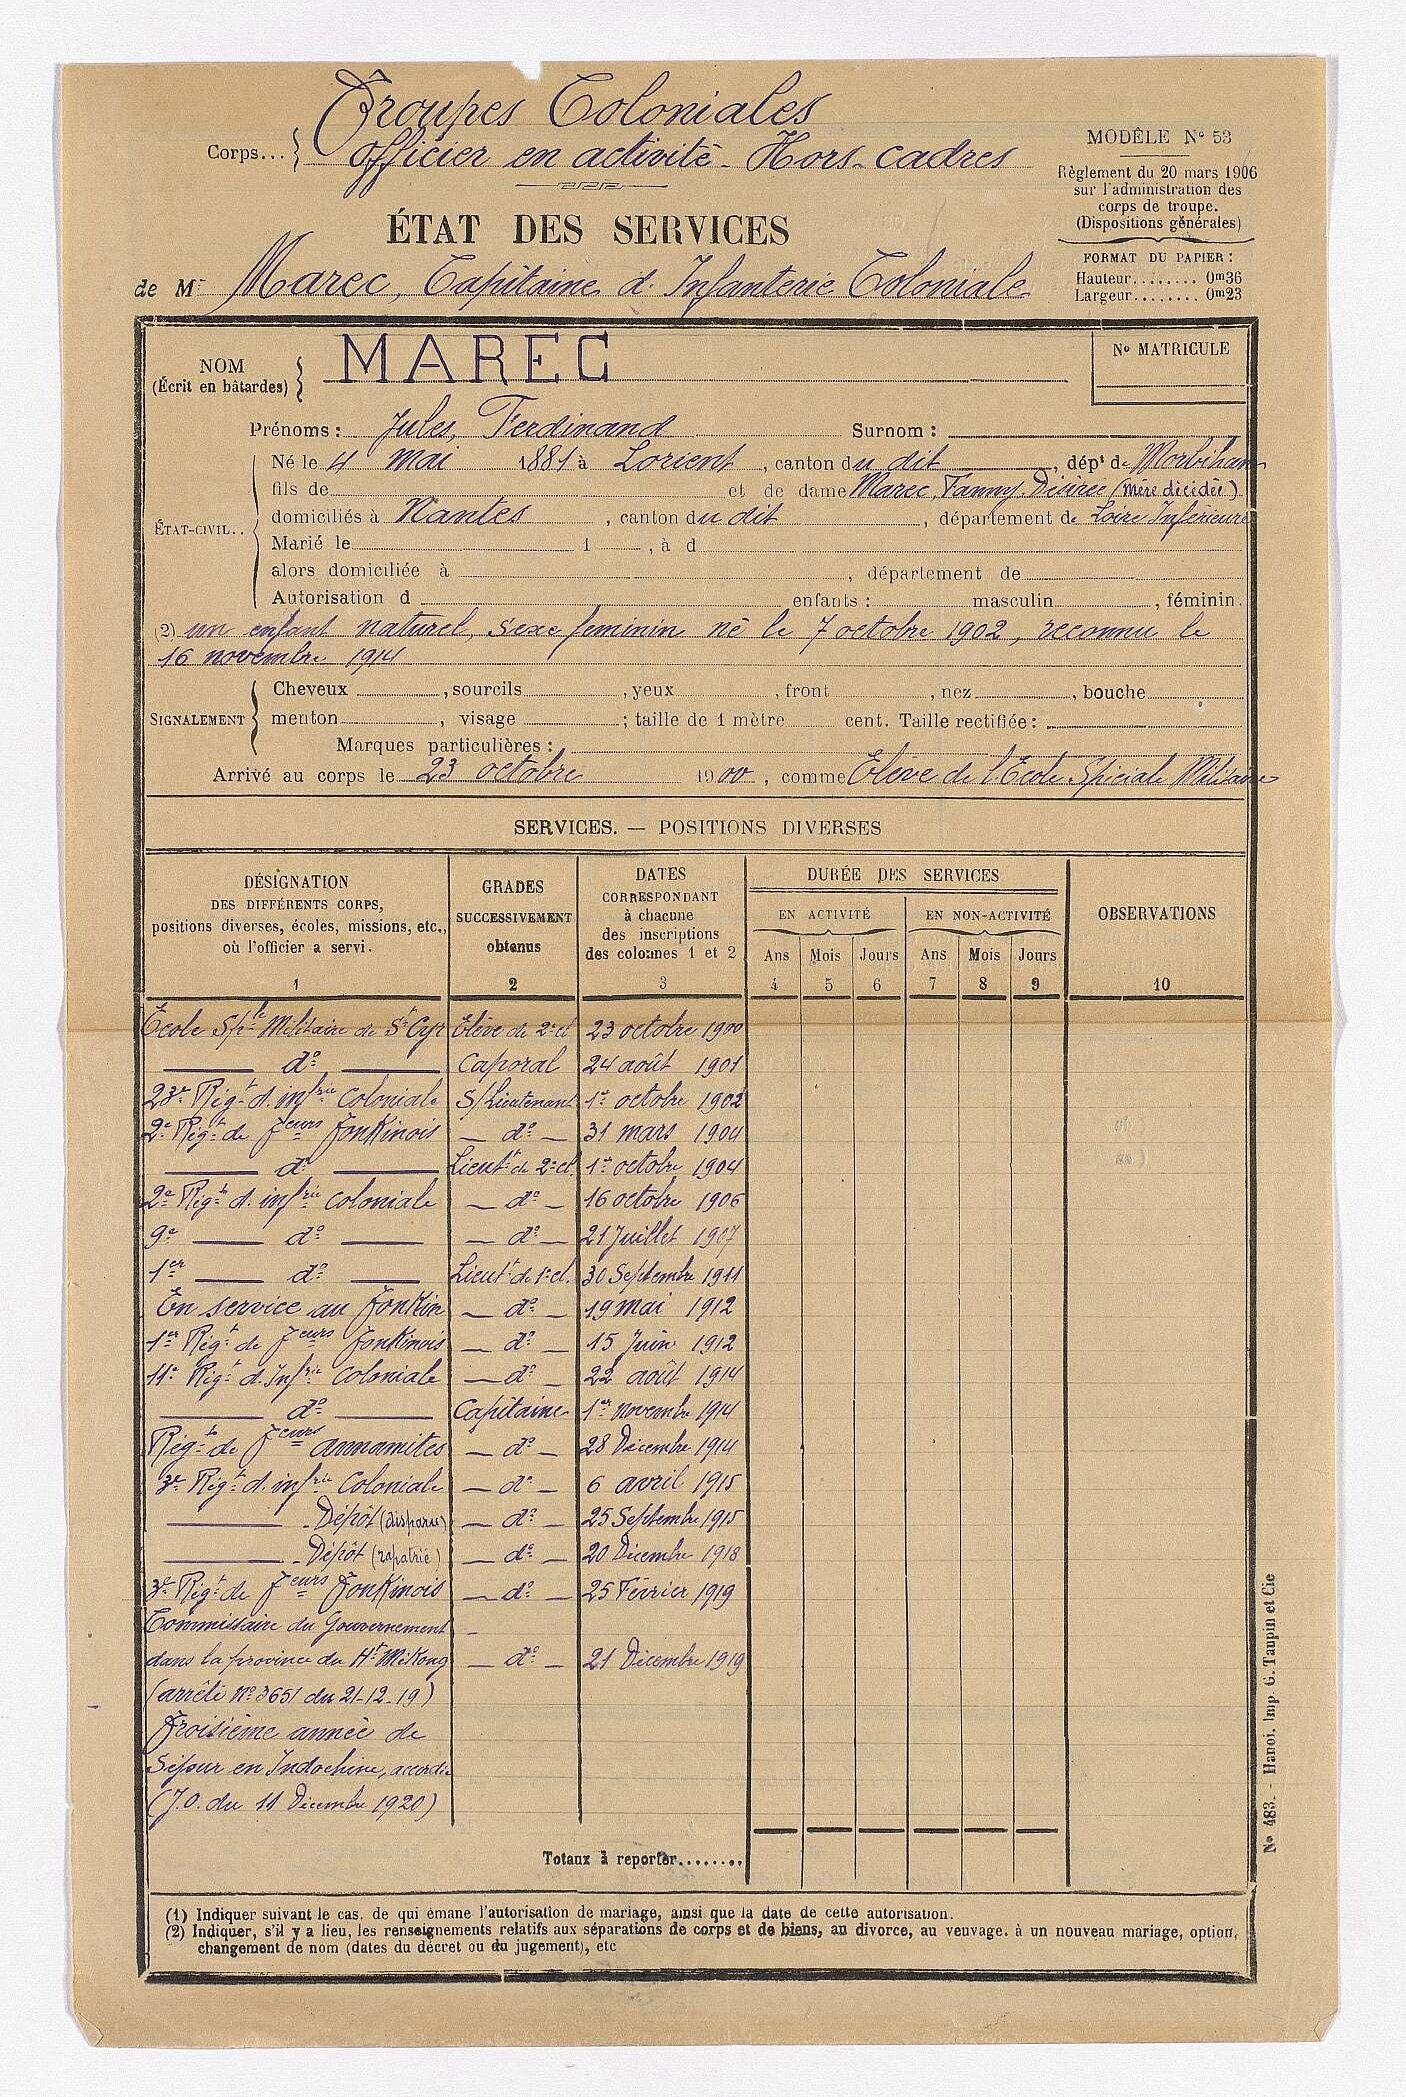 Troupes Coloniales
Corps... officier en activité - Hors-cadres
MODÈLE N° 53
Règlement du 20 mars 1906
sur l'administration des
corps de troupe.
(Dispositions générales)
FORMAT DU PAPIER :
Hauteur........ 0m36
Largeur........ 0m23
ÉTAT DES SERVICES
de Mr Marec, Capitaine d'Infanterie Coloniale
NOM MAREC
(Écrit en bâtardes)
N° MATRICULE
Prénoms : Jules, Ferdinand Surnom :
ÉTAT-CIVIL..
Né le 4 mai 1881 à Lorient, canton du dit, dépt de Morbihan
fils de et de dame Marec, Fanny, Désirée (mère décédée)
domiciliés à Nantes, canton du dit, département de Loire Inférieure
Marié le 1 , à d
alors domiciliée à , département de
Autorisation d enfants : masculin , féminin.
(2) un enfant naturel, sexe féminin né le 7 octobre 1902, reconnu le
16 novembre 1914
SIGNALEMENT
Cheveux , sourcils , yeux , front , nez , bouche
menton , visage ; taille de 1 mètre cent. Taille rectifiée :
Marques particulières :
Arrivé au corps le 23 octobre 1900, comme Elève de l'Ecole Spéciale Militaire
SERVICES. — POSITIONS DIVERSES
DÉSIGNATION
DES DIFFÉRENTS CORPS,
positions diverses, écoles, missions, etc.,
où l'officier a servi.
1
GRADES
SUCCESSIVEMENT
obtenus
2
DATES
CORRESPONDANT
à chacune
des inscriptions
des colonnes 1 et 2
3
DURÉE DES SERVICES
EN ACTIVITÉ EN NON-ACTIVITÉ
Ans Mois Jours Ans Mois Jours
4 5 6 7 8 9
OBSERVATIONS
10
Ecole Sple Militaire de St Cyr Elève de 2e cl 23 octobre 1900
— do — Caporal 24 août 1901
23e Régt d'infrie coloniale S/Lieutenant 1er octobre 1902
2e Régt de Teurs Tonkinois — do — 31 mars 1904
— do — Lieutt de 2e cl. 1er octobre 1904
2e Régt d'infrie coloniale — do — 16 octobre 1906
9e — do — — do — 21 Juillet 1907
1er — do — Lieutt de 1e cl. 30 Septembre 1911
En service au Tonkin — do — 19 mai 1912
1er Régt de Teurs Tonkinois — do — 15 Juin 1912
11e Régt d'Infrie Coloniale — do — 22 août 1914
— do — Capitaine 1er novembre 1914
Régt de Teurs annamites — do — 28 Décembre 1914
3e Régt d'infrie Coloniale — do — 6 avril 1915
— Dépôt (disparu) — do — 25 Septembre 1915
— Dépôt (rapatrié) — do — 20 Décembre 1918
3e Régt de Teurs Tonkinois — do — 25 Février 1919
Commissaire du Gouvernement
dans la province du Ht Mékong — do — 21 Décembre 1919
(arrêté No 3651 du 21-12-19)
Troisième année de
Séjour en Indochine, accordée
(J.O. du 11 Décembre 1920)
Totaux à reporter........
(1) Indiquer suivant le cas, de qui émane l'autorisation de mariage, ainsi que la date de cette autorisation.
(2) Indiquer, s'il y a lieu, les renseignements relatifs aux séparations de corps et de biens, au divorce, au veuvage, à un nouveau mariage, option,
changement de nom (dates du décret ou du jugement), etc
N° 483. - Hanoi, Imp. G. Taupin et Cie